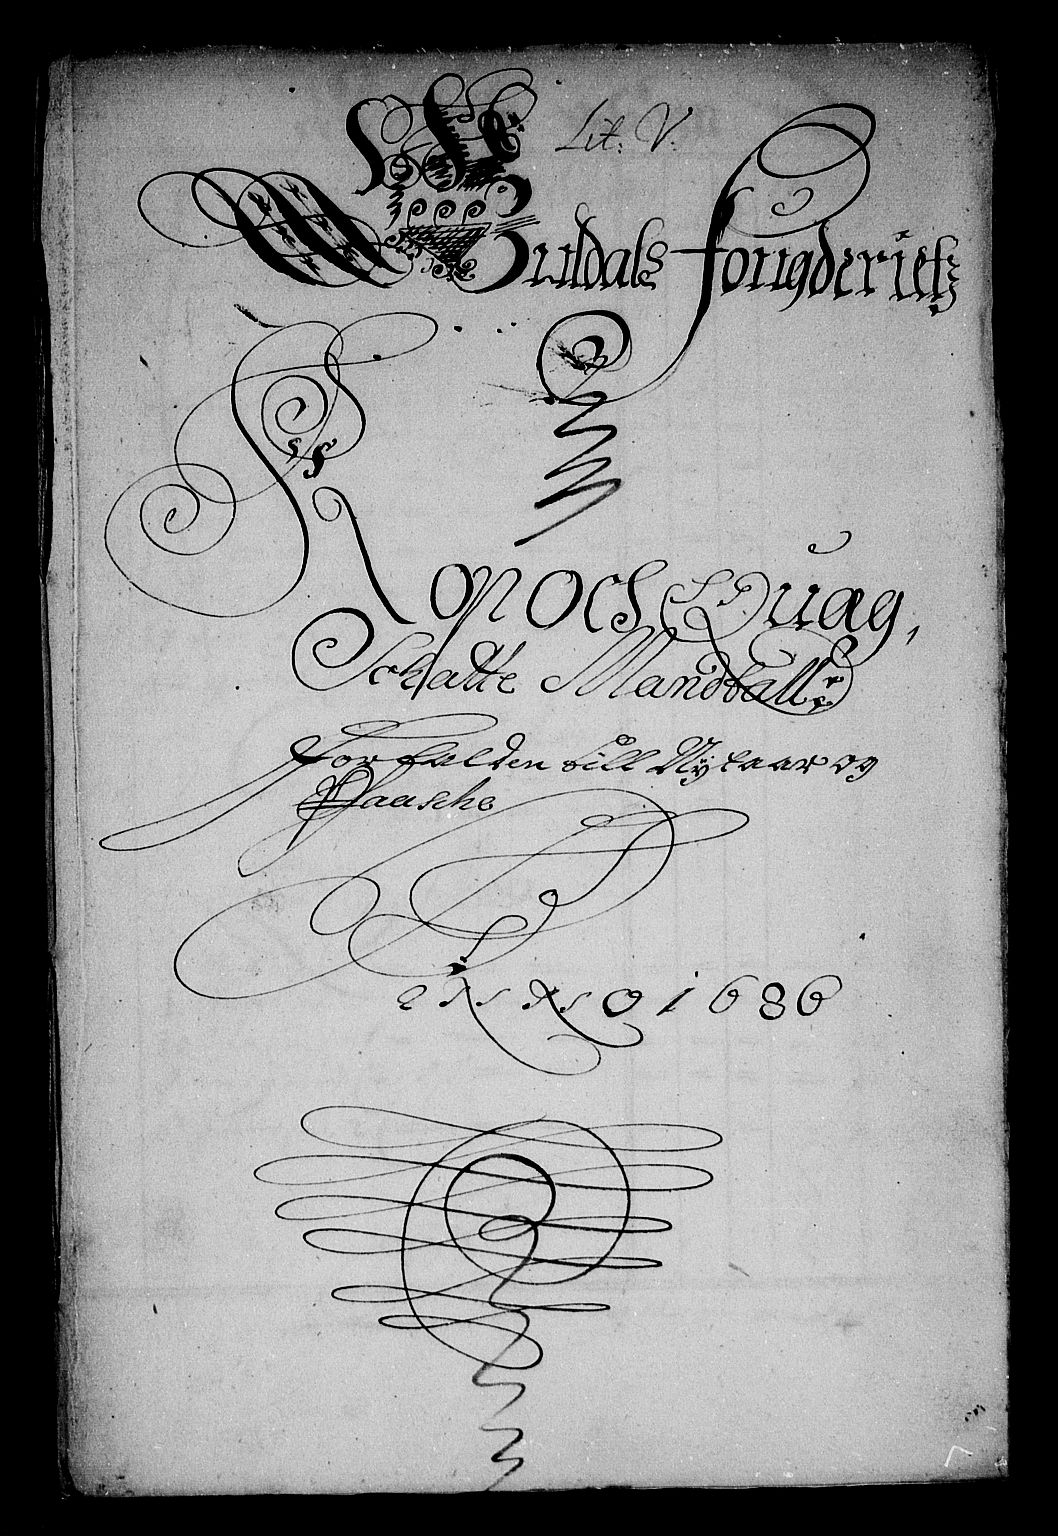 Lit: V.
Guldals fougderietz
Kop och Quæg,
Schatte Mandtall
forfalden till Nÿtaar og
Paasche
Anno 1686